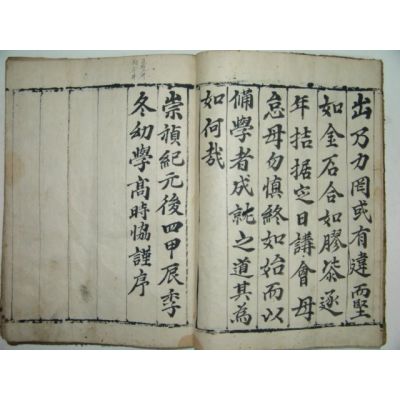 出乃力罔或有違而堅
如金石合如膠漆逐
年拮据定日講會毋
怠毋勿慎終如始而以
備學者成就之道其為
如何哉
崇禎紀元後四甲辰季
冬幼學高時協謹序